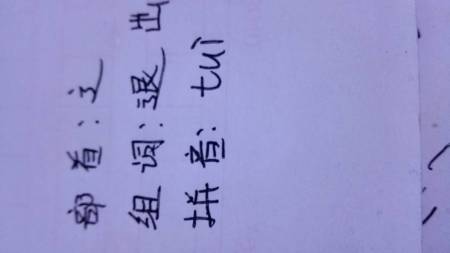 部首:辶
组词:退出
拼音:tuì